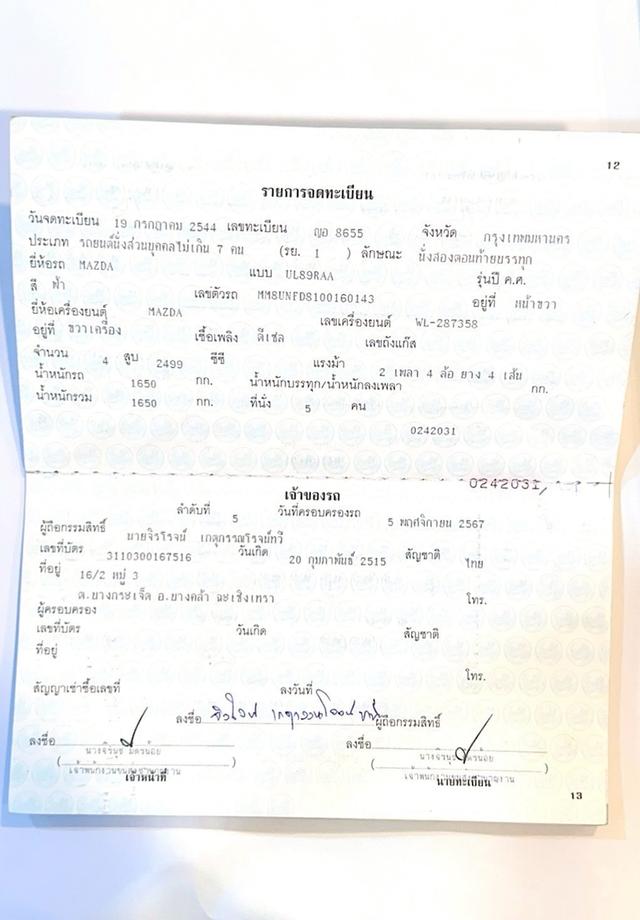 12
รายการจดทะเบียน
วันจดทะเบียน 19 กรกฎาคม 2544 เลขทะเบียน ญอ 8655 จังหวัด กรุงเทพมหานคร
ประเภท รถยนต์นั่งส่วนบุคคลไม่เกิน 7 คน (รย. 1 ) ลักษณะ นั่งสองตอนท้ายบรรทุก
ยี่ห้อรถ MAZDA แบบ UL89RAA รุ่นปี ค.ศ.
สี ฟ้า เลขตัวรถ MM8UNFD8100160143 อยู่ที่ หน้าขวา
ยี่ห้อเครื่องยนต์ MAZDA เลขเครื่องยนต์ WL-287358
อยู่ที่ ขวาเครื่อง เชื้อเพลิง ดีเซล เลขถังแก๊ส
จำนวน 4 สูบ 2499 ซีซี แรงม้า 2 เพลา 4 ล้อ ยาง 4 เส้น
น้ำหนักรถ 1650 กก. น้ำหนักบรรทุก/น้ำหนักลงเพลา กก.
น้ำหนักรวม 1650 กก. ที่นั่ง 5 คน
0242031
0242031,
เจ้าของรถ
ลำดับที่ 5 วันที่ครอบครองรถ 5 พฤศจิกายน 2567
ผู้ถือกรรมสิทธิ์ นายจิรโรจน์ เกตุกรรณโรจน์ทวี
เลขที่บัตร 3110300167516 วันเกิด 20 กุมภาพันธ์ 2515 สัญชาติ ไทย
ที่อยู่ 16/2 หมู่ 3
ต.บางกระเจ็ด อ.บางคล้า ฉะเชิงเทรา โทร.
ผู้ครอบครอง
เลขที่บัตร วันเกิด สัญชาติ
ที่อยู่
โทร.
สัญญาเช่าซื้อเลขที่ ลงวันที่
ลงชื่อ ผู้ถือกรรมสิทธิ์
ลงชื่อ ลงชื่อ
( นางจิรนุช มิตรน้อย ) ( นางจิรนุช มิตรน้อย )
เจ้าพนักงานขนส่งชำนาญงาน เจ้าพนักงานขนส่งชำนาญงาน
เจ้าหน้าที่ นายทะเบียน
13